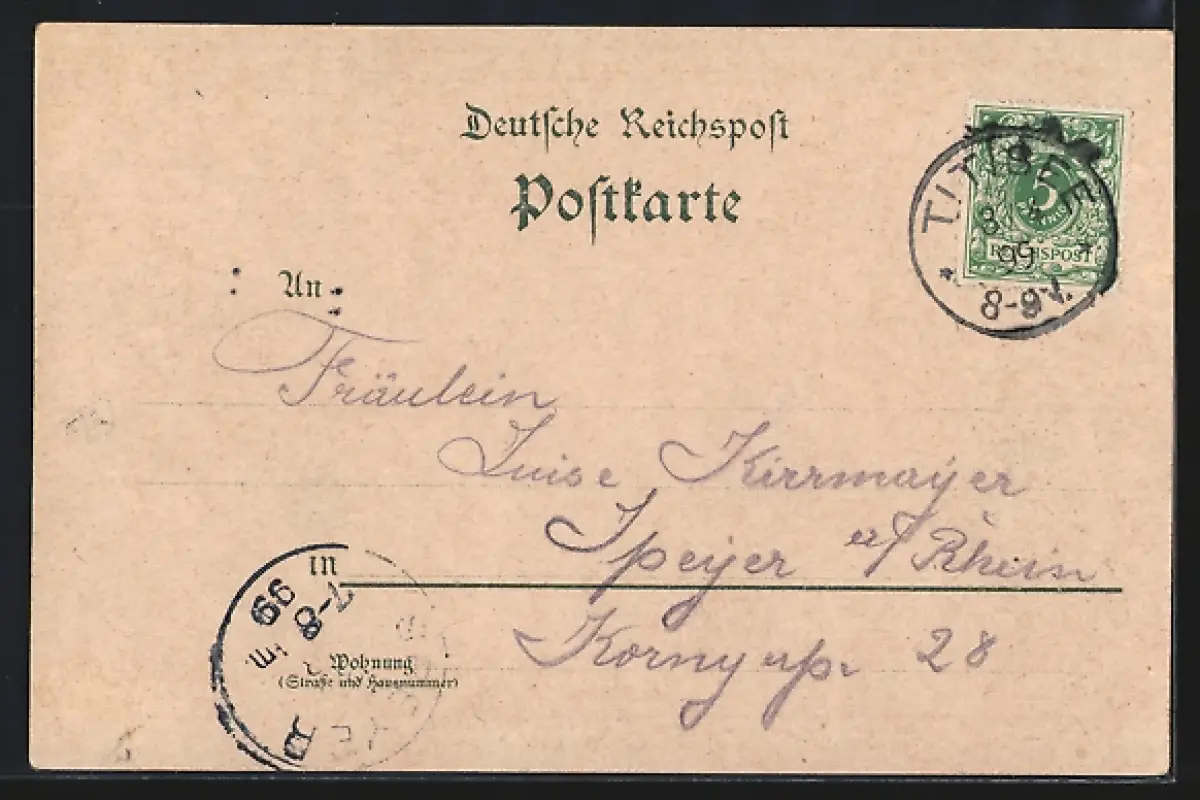 Deutsche Reichspost
Postkarte
TITISEE
8 4
99
8-9 V.
5
REICHSPOST
An
Fräulein
Luise Kirrmayer
Speyer a/Rhein
in
28
Wohnung
(Straße und Hausnummer)
99
7-8